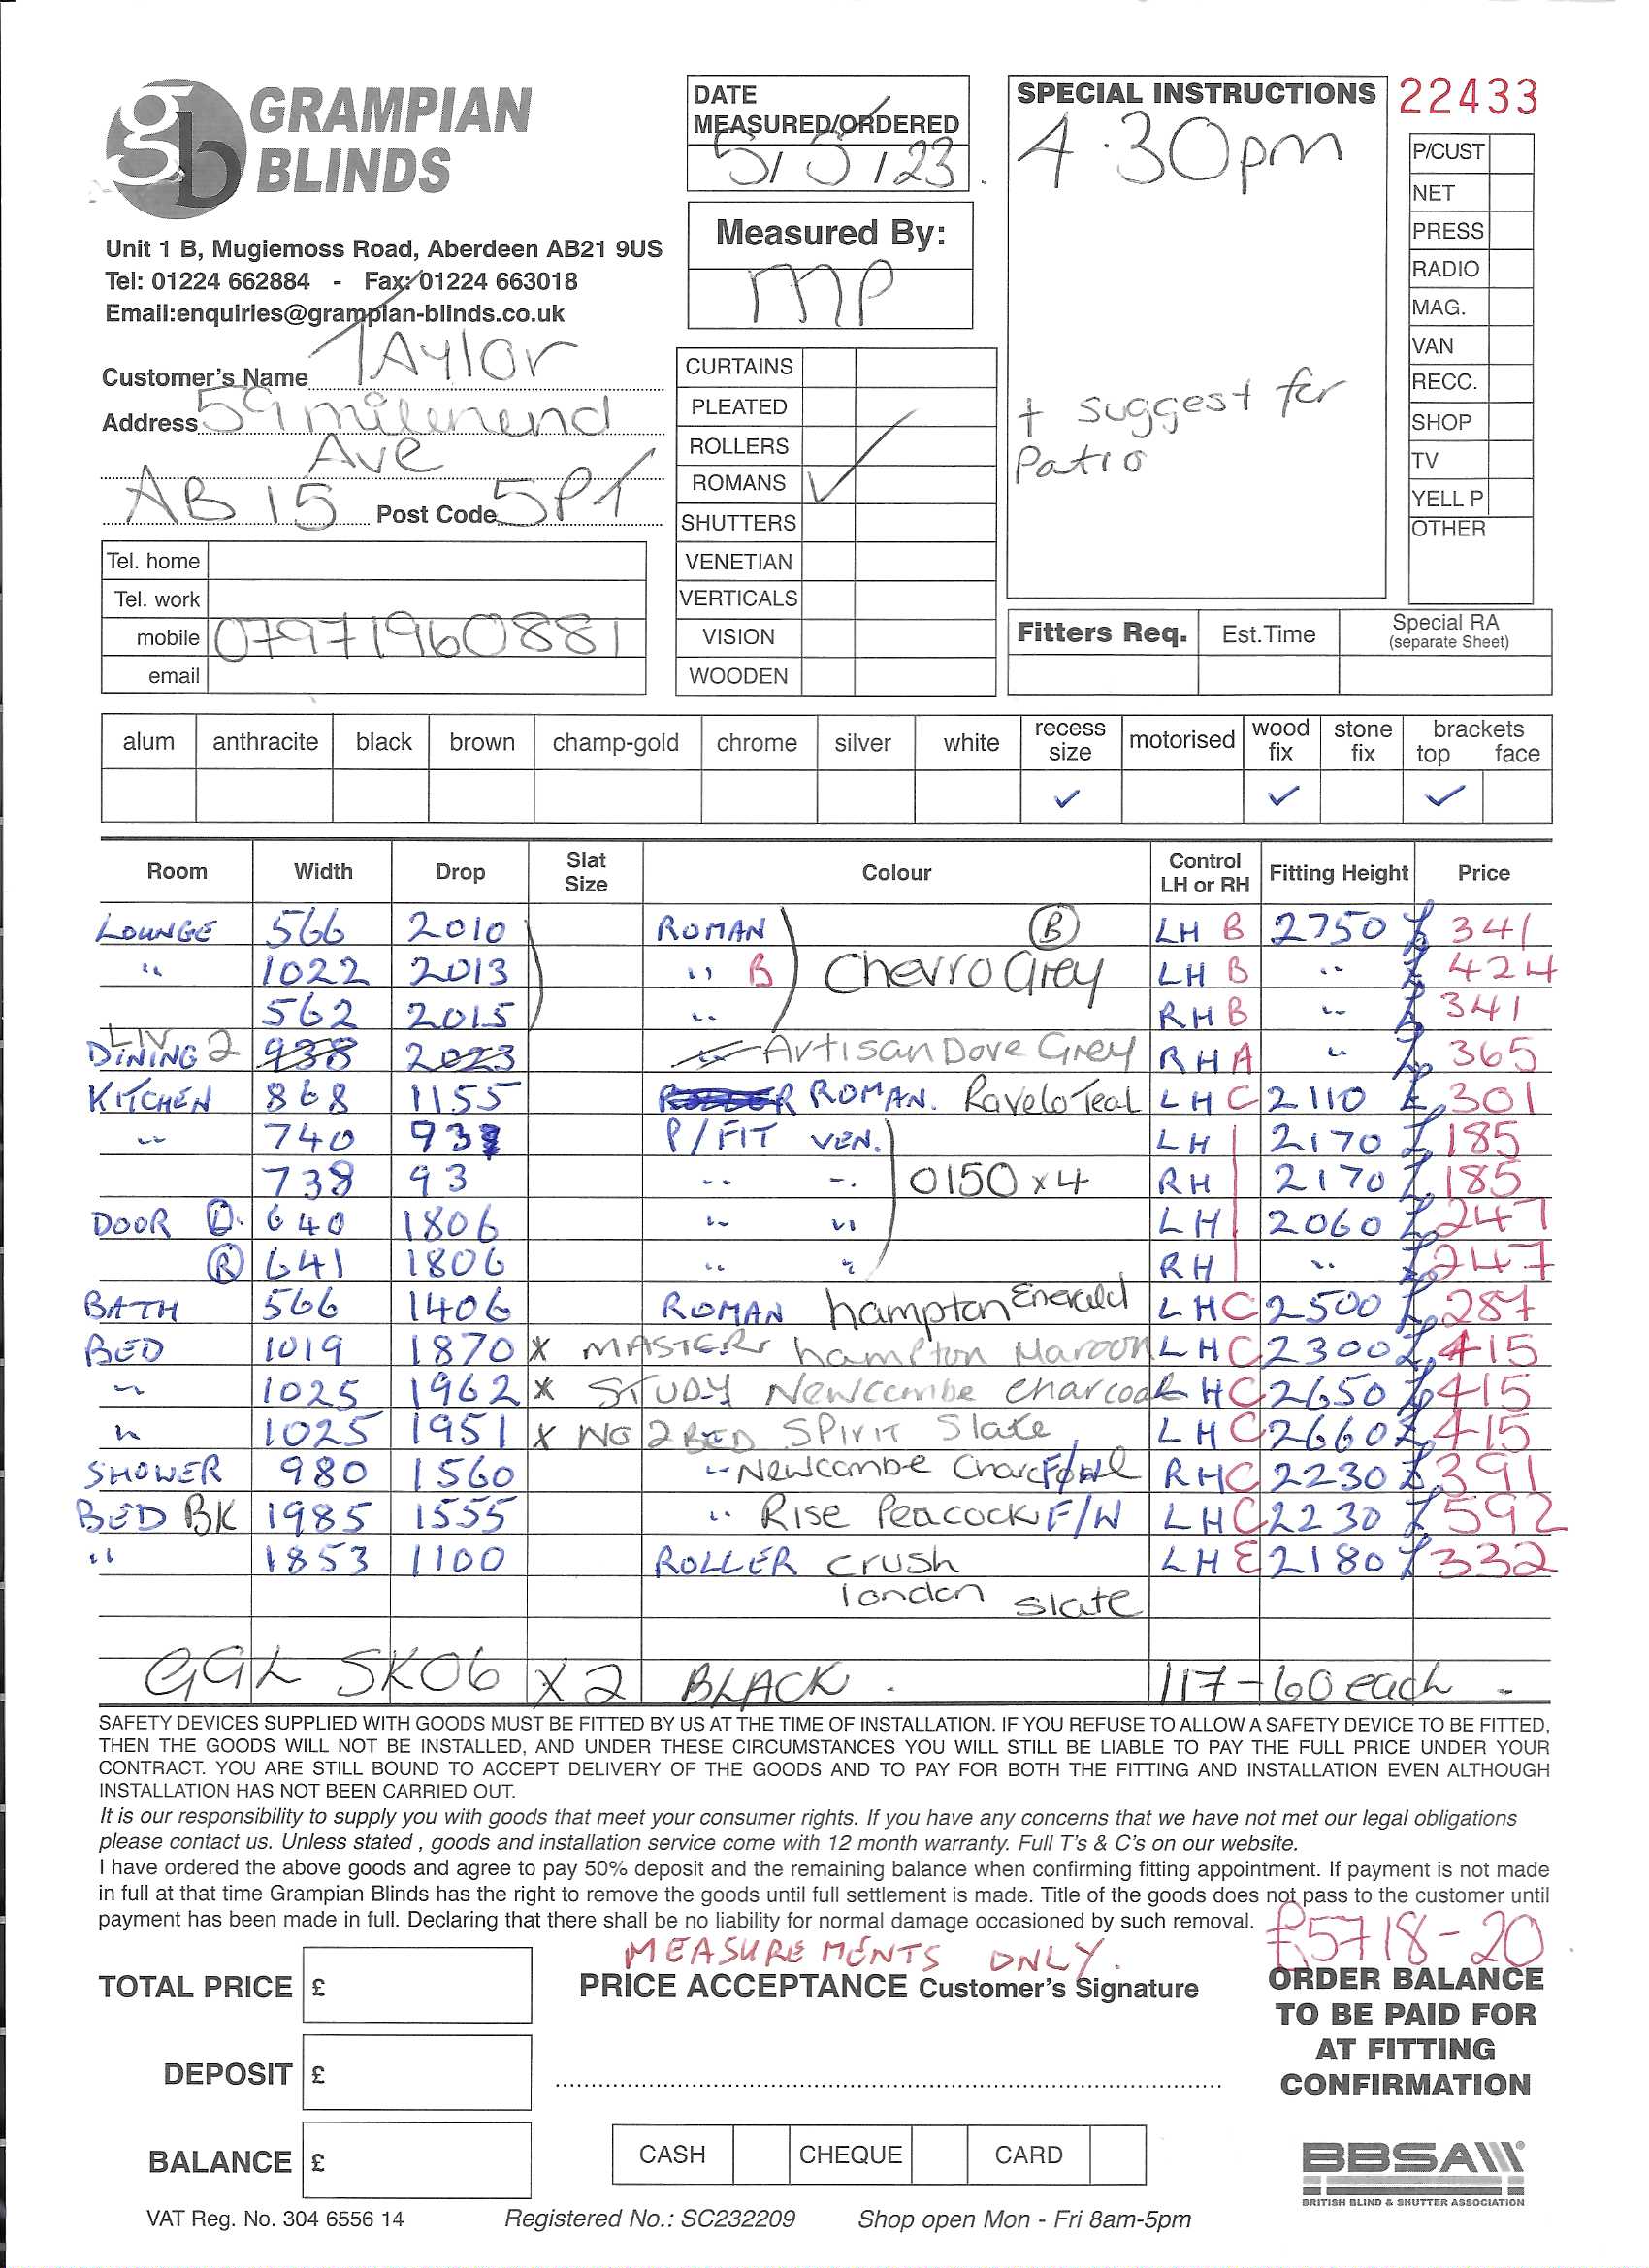 gb GRAMPIAN BLINDS
Unit 1 B, Mugiemoss Road, Aberdeen AB21 9US
Tel: 01224 662884 - Fax: 01224 663018
Email:enquiries@grampian-blinds.co.uk
Customer's Name TAylor
Address 59 milenend
Ave
AB 15 Post Code 5P
Tel. home
Tel. work
mobile 07971960881
email
DATE
MEASURED/ORDERED
5/5/23.
Measured By:
MP
CURTAINS
PLEATED
ROLLERS
ROMANS ✓
SHUTTERS
VENETIAN
VERTICALS
VISION
WOODEN
SPECIAL INSTRUCTIONS
4.30pm
+ suggest for
Patio
22433
P/CUST
NET
PRESS
RADIO
MAG.
VAN
RECC.
SHOP
TV
YELL P
OTHER
Fitters Req. Est.Time Special RA (separate Sheet)
alum anthracite black brown champ-gold chrome silver white recess size motorised wood fix stone fix brackets top face
✓ ✓ ✓
Room Width Drop Slat Size Colour Control LH or RH Fitting Height Price
LOUNGE 566 2010 ROMAN (B) LH B 2750 £ 341
" 1022 2013 " B Chevro Grey LH B " £ 424
562 2015 " RH B " £ 341
LIV 2 DINING 938 2023 Artisan Dove Grey RH A " £ 365
KITCHEN 868 1155 ROMAN. Ravelo Teal LH C 2110 £ 301
" 740 93 P/FIT VEN. LH 2170 £ 185
738 93 " " 0150 x 4 RH 2170 £ 185
DOOR (L) 640 1806 " " LH 2060 £ 247
(R) 641 1806 " " RH " £ 247
BATH 566 1406 ROMAN hampton Emerald LH C 2500 £ 287
BED 1019 1870 x MASTER hampton Maroon LH C 2300 £ 415
" 1025 1962 x STUDY Newcombe charcoal LH C 2650 £ 415
" 1025 1951 x NO 2 BED SPirit Slate LH C 2660 £ 415
SHOWER 980 1560 " Newcombe F/W RH C 2230 £ 391
BED BK 1985 1555 " Rise Peacock F/W LH C 2230 £ 592
" 1853 1100 ROLLER crush LH E 2180 £ 332
london slate
GGL SK06 x 2 BLACK. 117-60 each -
SAFETY DEVICES SUPPLIED WITH GOODS MUST BE FITTED BY US AT THE TIME OF INSTALLATION. IF YOU REFUSE TO ALLOW A SAFETY DEVICE TO BE FITTED,
THEN THE GOODS WILL NOT BE INSTALLED, AND UNDER THESE CIRCUMSTANCES YOU WILL STILL BE LIABLE TO PAY THE FULL PRICE UNDER YOUR
CONTRACT. YOU ARE STILL BOUND TO ACCEPT DELIVERY OF THE GOODS AND TO PAY FOR BOTH THE FITTING AND INSTALLATION EVEN ALTHOUGH
INSTALLATION HAS NOT BEEN CARRIED OUT.
It is our responsibility to supply you with goods that meet your consumer rights. If you have any concerns that we have not met our legal obligations
please contact us. Unless stated , goods and installation service come with 12 month warranty. Full T's & C's on our website.
I have ordered the above goods and agree to pay 50% deposit and the remaining balance when confirming fitting appointment. If payment is not made
in full at that time Grampian Blinds has the right to remove the goods until full settlement is made. Title of the goods does not pass to the customer until
payment has been made in full. Declaring that there shall be no liability for normal damage occasioned by such removal.
£5718-20
MEASUREMENTS ONLY.
TOTAL PRICE £
PRICE ACCEPTANCE Customer's Signature
ORDER BALANCE
TO BE PAID FOR
AT FITTING
CONFIRMATION
DEPOSIT £
BALANCE £
CASH CHEQUE CARD
BBSA
BRITISH BLIND & SHUTTER ASSOCIATION
VAT Reg. No. 304 6556 14 Registered No.: SC232209 Shop open Mon - Fri 8am-5pm